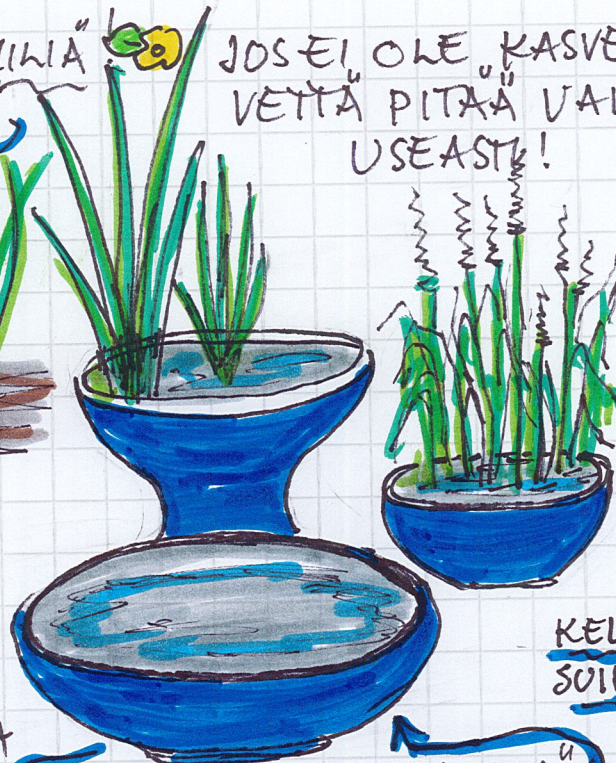 ILIÄ
JOS EI OLE KASVE
VETTÄ PITÄÄ VAI
USEASTI!
KEL
SUI
Ä